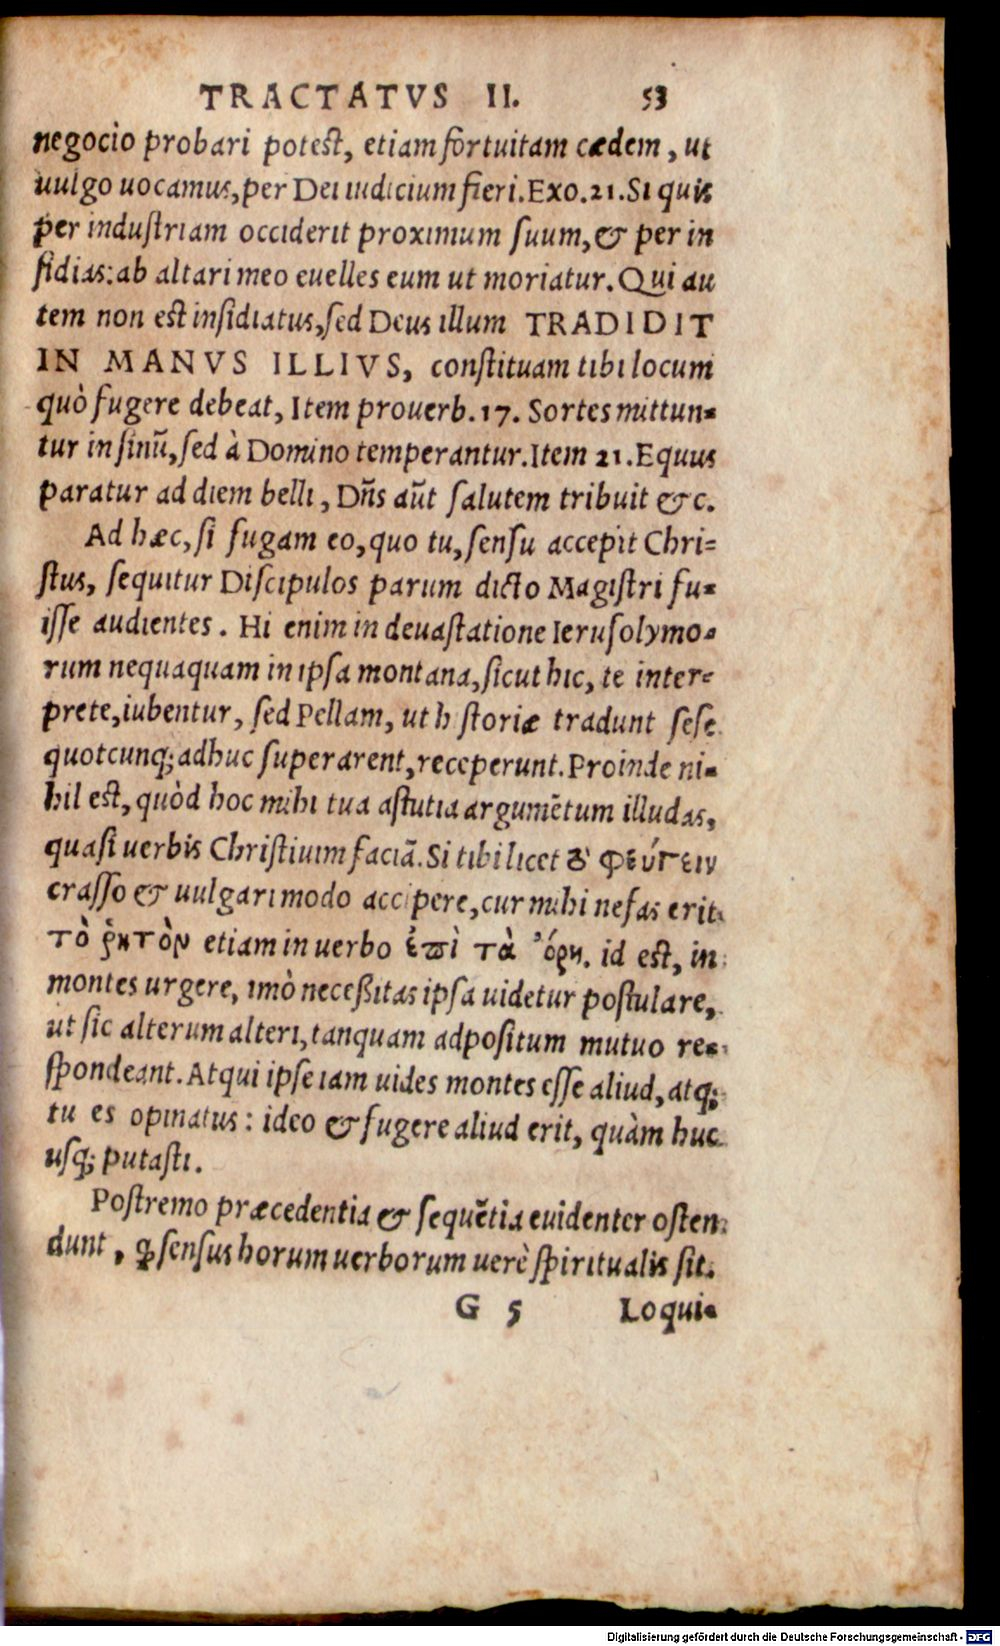 TRACTATVS II. 53
negocio probari potest, etiam fortuitam cædem, ut
uulgo uocamus, per Dei iudicium fieri. Exo. 21. Si quis
per industriam occiderit proximum suum, & per in
sidias: ab altari meo euelles eum ut moriatur. Qui au
tem non est insidiatus, sed Deus illum TRADIDIT
IN MANVS ILLIVS, constituam tibi locum
quò fugere debeat, Item prouerb. 17. Sortes mittun-
tur in sinū, sed à Domino temperantur. Item 21. Equus
paratur ad diem belli, Dn̄s aūt salutem tribuit & c.
Ad hæc, si fugam eo, quo tu, sensu accepit Chri-
stus, sequitur Discipulos parum dicto Magistri fu-
isse audientes. Hi enim in deuastatione Ierusolymo-
rum nequaquam in ipsa montana, sicut hic, te inter-
prete, iubentur, sed Pellam, ut h storiæ tradunt sese
quotcunq; adhuc superarent, receperunt. Proinde ni-
hil est, quòd hoc mihi tua astutia argumētum illudas,
quasi uerbis Christi uim faciā. Si tibi licet ȣ̓ φεύγειν
crasso & uulgari modo accipere, cur mihi nefas erit
τὸ ῥητὸν etiam in uerbo ἐπὶ τὰ ὄρη. id est, in
montes urgere, imò neceßitas ipsa uidetur postulare,
ut sic alterum alteri, tanquam adpositum mutuo re-
spondeant. Atqui ipse iam uides montes esse aliud, atq;
tu es opinatus: ideo & fugere aliud erit, quàm huc
usq; putasti.
Postremo præcedentia & sequētia euidenter osten
dunt, ꝙ sensus horum uerborum uerè spiritualis sit.
G 5 Loqui-
Digitalisierung gefördert durch die Deutsche Forschungsgemeinschaft - DFG